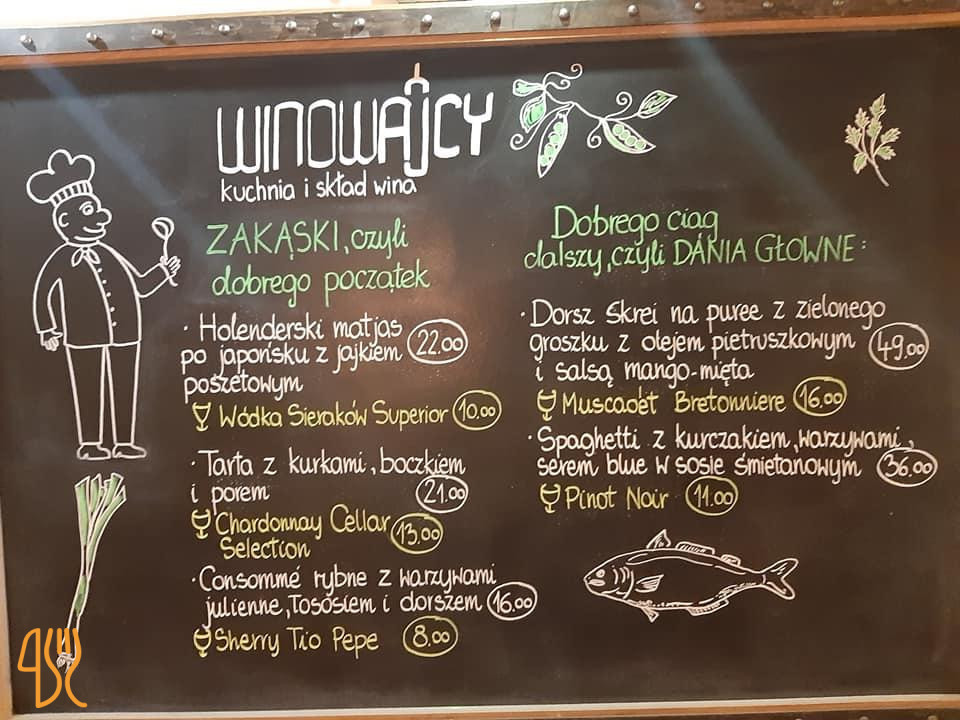 WINOWAJCY
kuchnia i skład wina
ZAKĄSKI, czyli
dobrego początek
· Holenderski matjas
po japońsku z jajkiem 22.00
poszetowym
Wódka Sieraków Superior 10.00
· Tarta z kurkami, boczkiem
i porem 21.00
Chardonnay Cellar 13.00
Selection
· Consommé rybne z warzywami
julienne, łososiem i dorszem 16.00
Sherry Tio Pepe 8.00
Dobrego ciąg
dalszy, czyli DANIA GŁOWNE:
· Dorsz Skrei na puree z zielonego
groszku z olejem pietruszkowym 49.00
i salsą mango-mięta
Muscadet Bretonniere 16.00
· Spaghetti z kurczakiem, warzywami,
serem blue w sosie śmietanowym 36.00
Pinot Noir 11.00